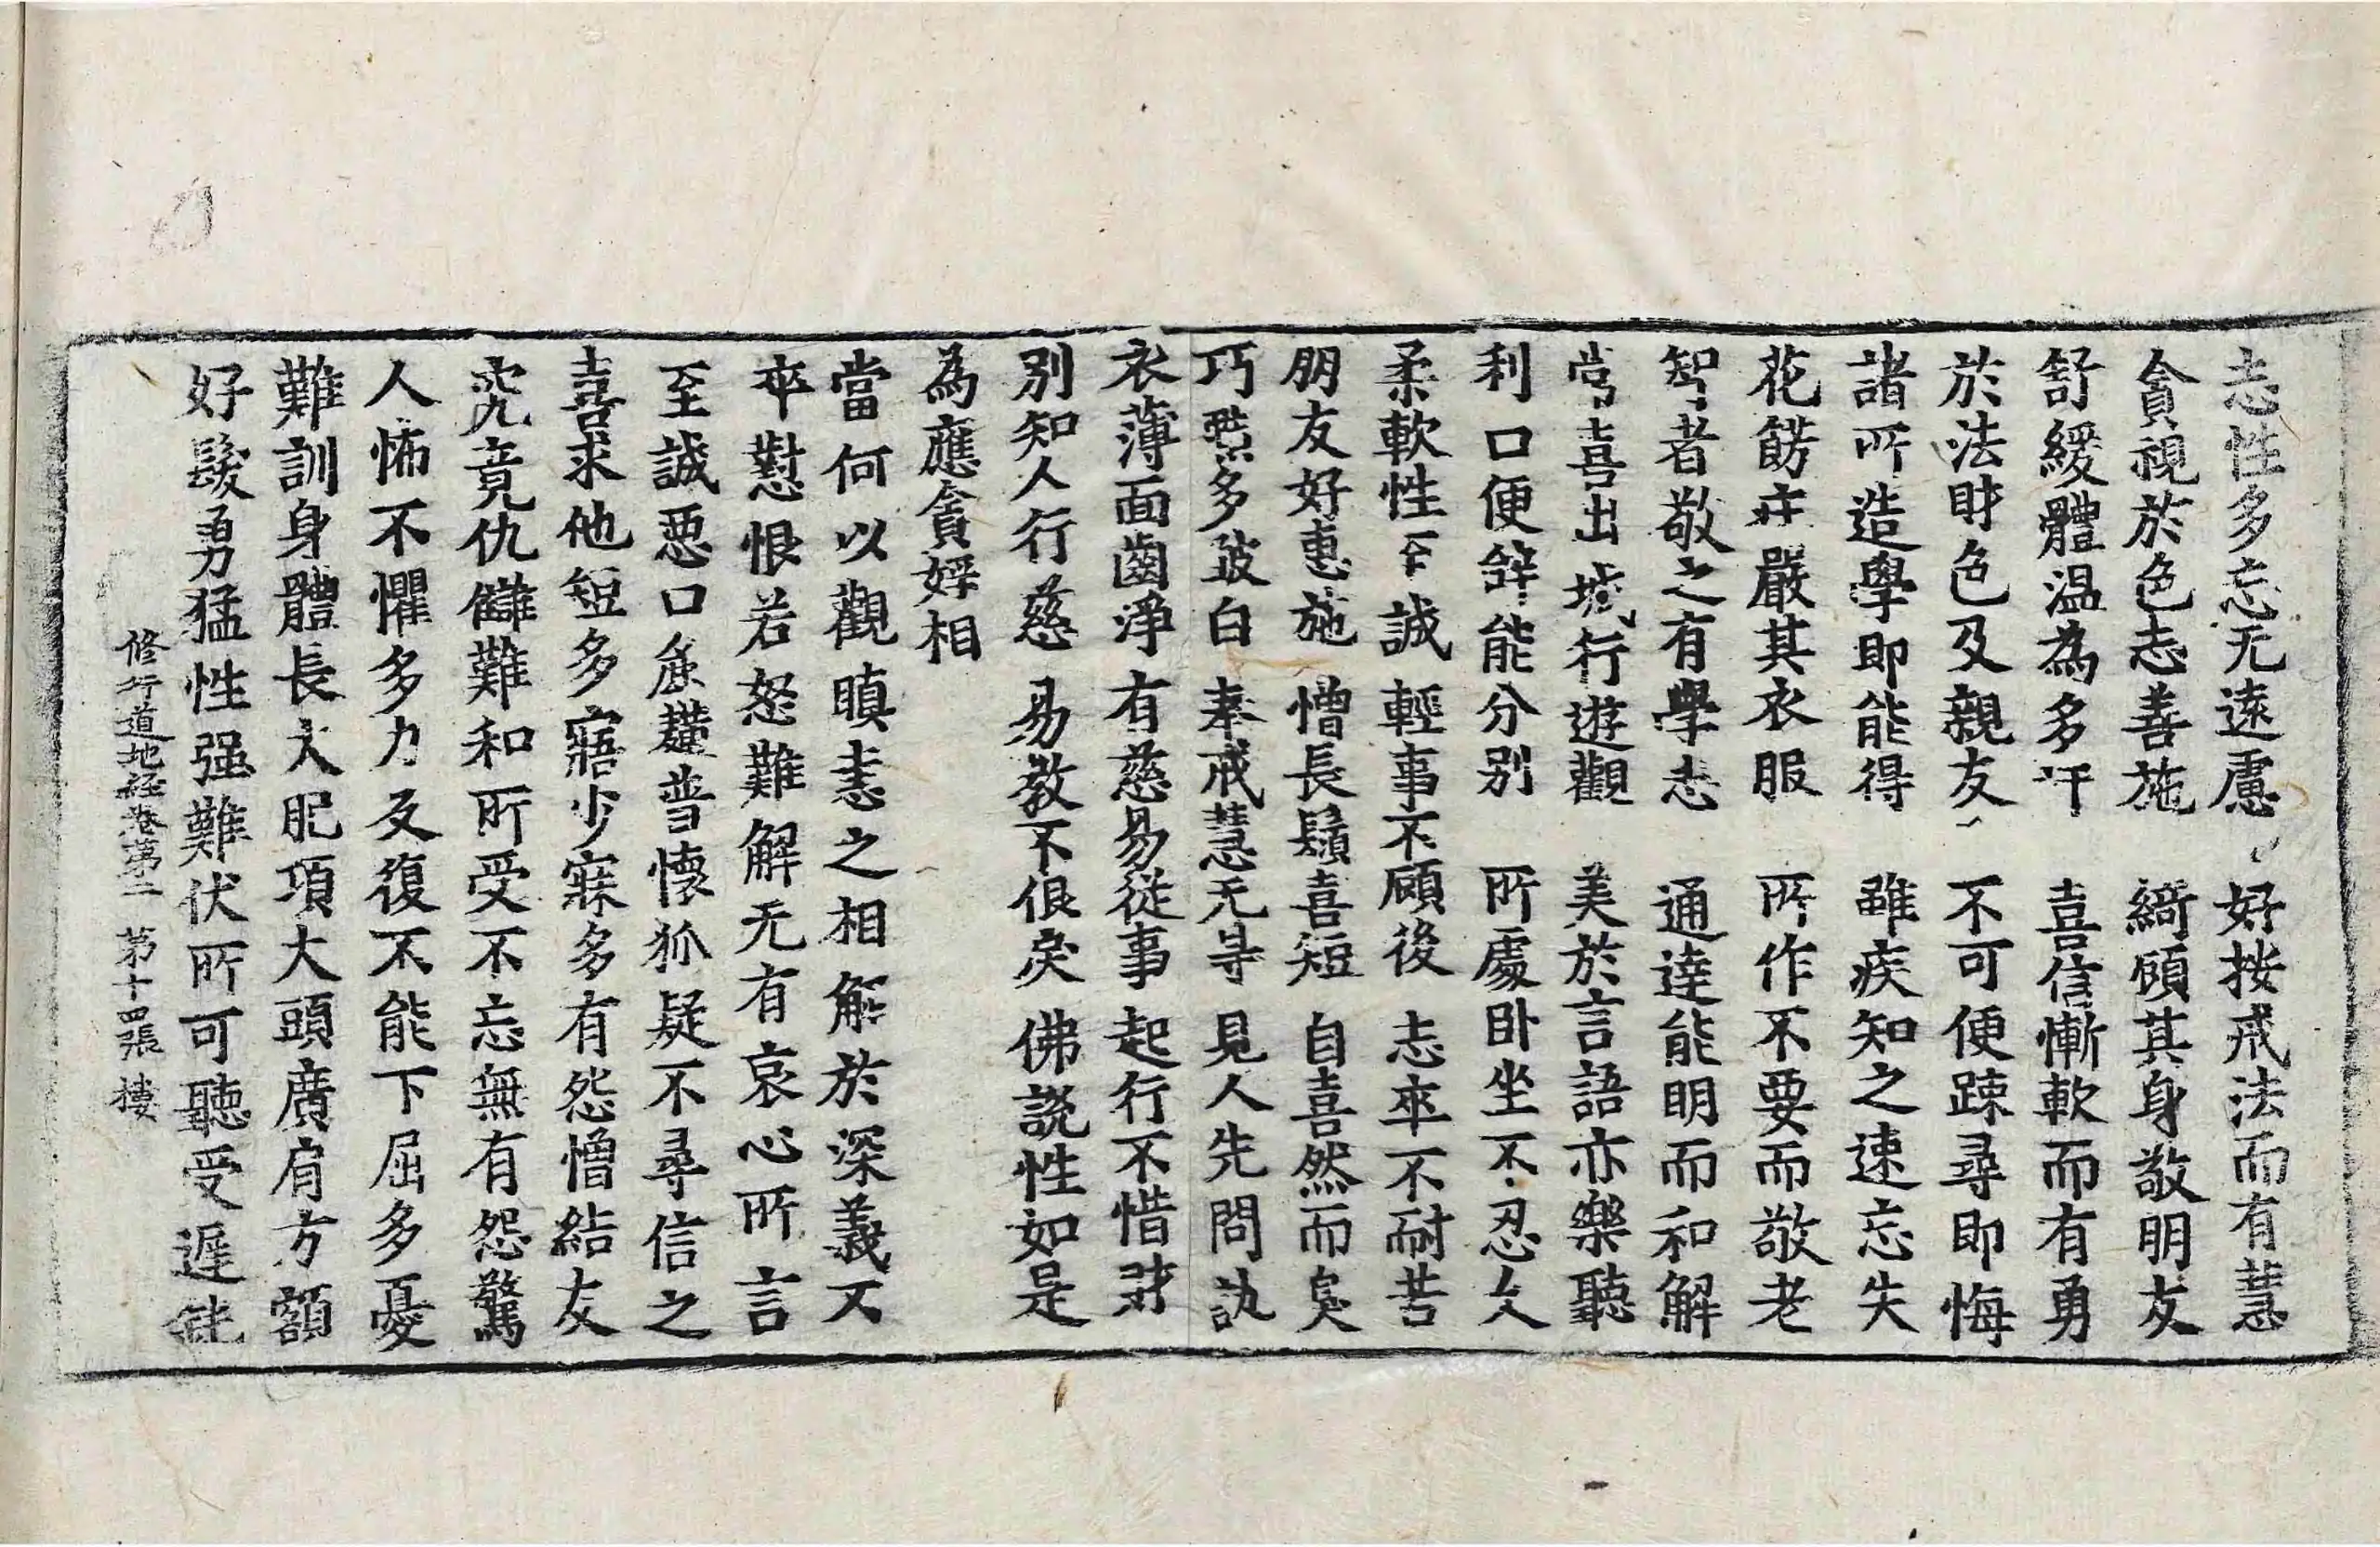 志性多忘无遠慮　好按戒法而有慧
貪視於色志善施　綺顧其身敬明友
舒緩體温為多汗　喜信慚軟而有勇
於法財色及親友　不可便踈尋即悔
諸所造學即能得　雖疾知之速忘失
花餝莊嚴其衣服　所作不要而敬老
智者敬之有學志　通達能明而和解
常喜出城行遊觀　美於言語亦樂聽
利口便辝能分別　所處卧坐不忍久
柔軟性至誠　輕事不顧後　志卒不耐苦
朋友好惠施　憎長鬚喜短　自喜然而臭
巧黠多跛白　奉戒慧无㝵　見人先問訊
衣薄面齒淨　有慈易従事　起行不惜財
別知人行慈　易教不佷戾　佛説性如是
為應貪婬相
當何以觀瞋恚之相解於深義不
卒懟恨若怒難解无有哀心所言
至誠惡口麁獷普懷狐疑不尋信之
喜求他短多寤少寐多有怨憎結友
究竟仇讎難和所受不忘無有怨驚
人怖不懼多力反復不能下屈多憂
難訓身體長大肥項大頭廣肩方額
好髮勇猛性强難伏所可聽受遲鈍
修行道地経卷第二　第十四張　樓